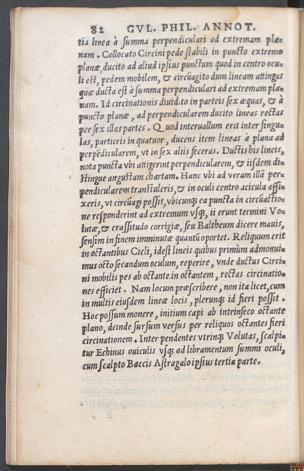 82 GVL. PHIL. ANNOT.
tia linea à summa perpendiculari ad extremam pla=
nam. Collocato Circini pede stabili in puncto extremo
planæ, ducito ad aliud ipsius punctum quod in centro ocu=
li est, pedem mobilem, & circũagito dum lineam attingas
quæ ducta est à summa perpendiculari ad extremam pla=
nam. Id circinationis diuidito in parteis sex æquas, & à
puncto planæ, ad perpendicularem ducito lineas rectas
per sex illas partes. Quod interuallum erit inter singu=
las, partieris in quatuor, ducens item lineas à plana ad
perpẽdicularem, vt in sex aliis feceras. Ductis bis lineis,
nota puncta vbi attigerint perpendicularem, & iisdem di=
stingue angustam chartam. Hanc vbi ad veram illã per=
pendicularem transtuleris, & in oculi centro acicula affi=
xeris, vt circũagi possit, vbicunq; ea puncta in circũactio=
ne responderint ad extremum vsq;, ii erunt termini Vo=
lutæ, & crassitudo corrigiæ, seu Baltheum dicere mauis,
sensim in finem imminutæ quantũ oportet. Reliquum erit
in octantibus Cicli, idest lineis quibus primùm admonui=
mus octo secandum oculum, reperire, vnde ductus Circi=
ni mobilis pes ab octante in octantem, rectas circinatio=
nes efficiet. Nam locum præscribere, non ita licet, cum
in multis eiusdem lineæ locis, plerunq; id fieri possit.
Hoc possum monere, initium capi ab intrinseco octante
plano, deinde sursum versus per reliquos octantes fieri
circinationem. Inter pendentes vtrinq; Volutas, scalpi=
tur Echinus ouiculis vsq; ad libramentum summi oculi,
cum scalpto Baccis Astragalo ipsius tertia parte.